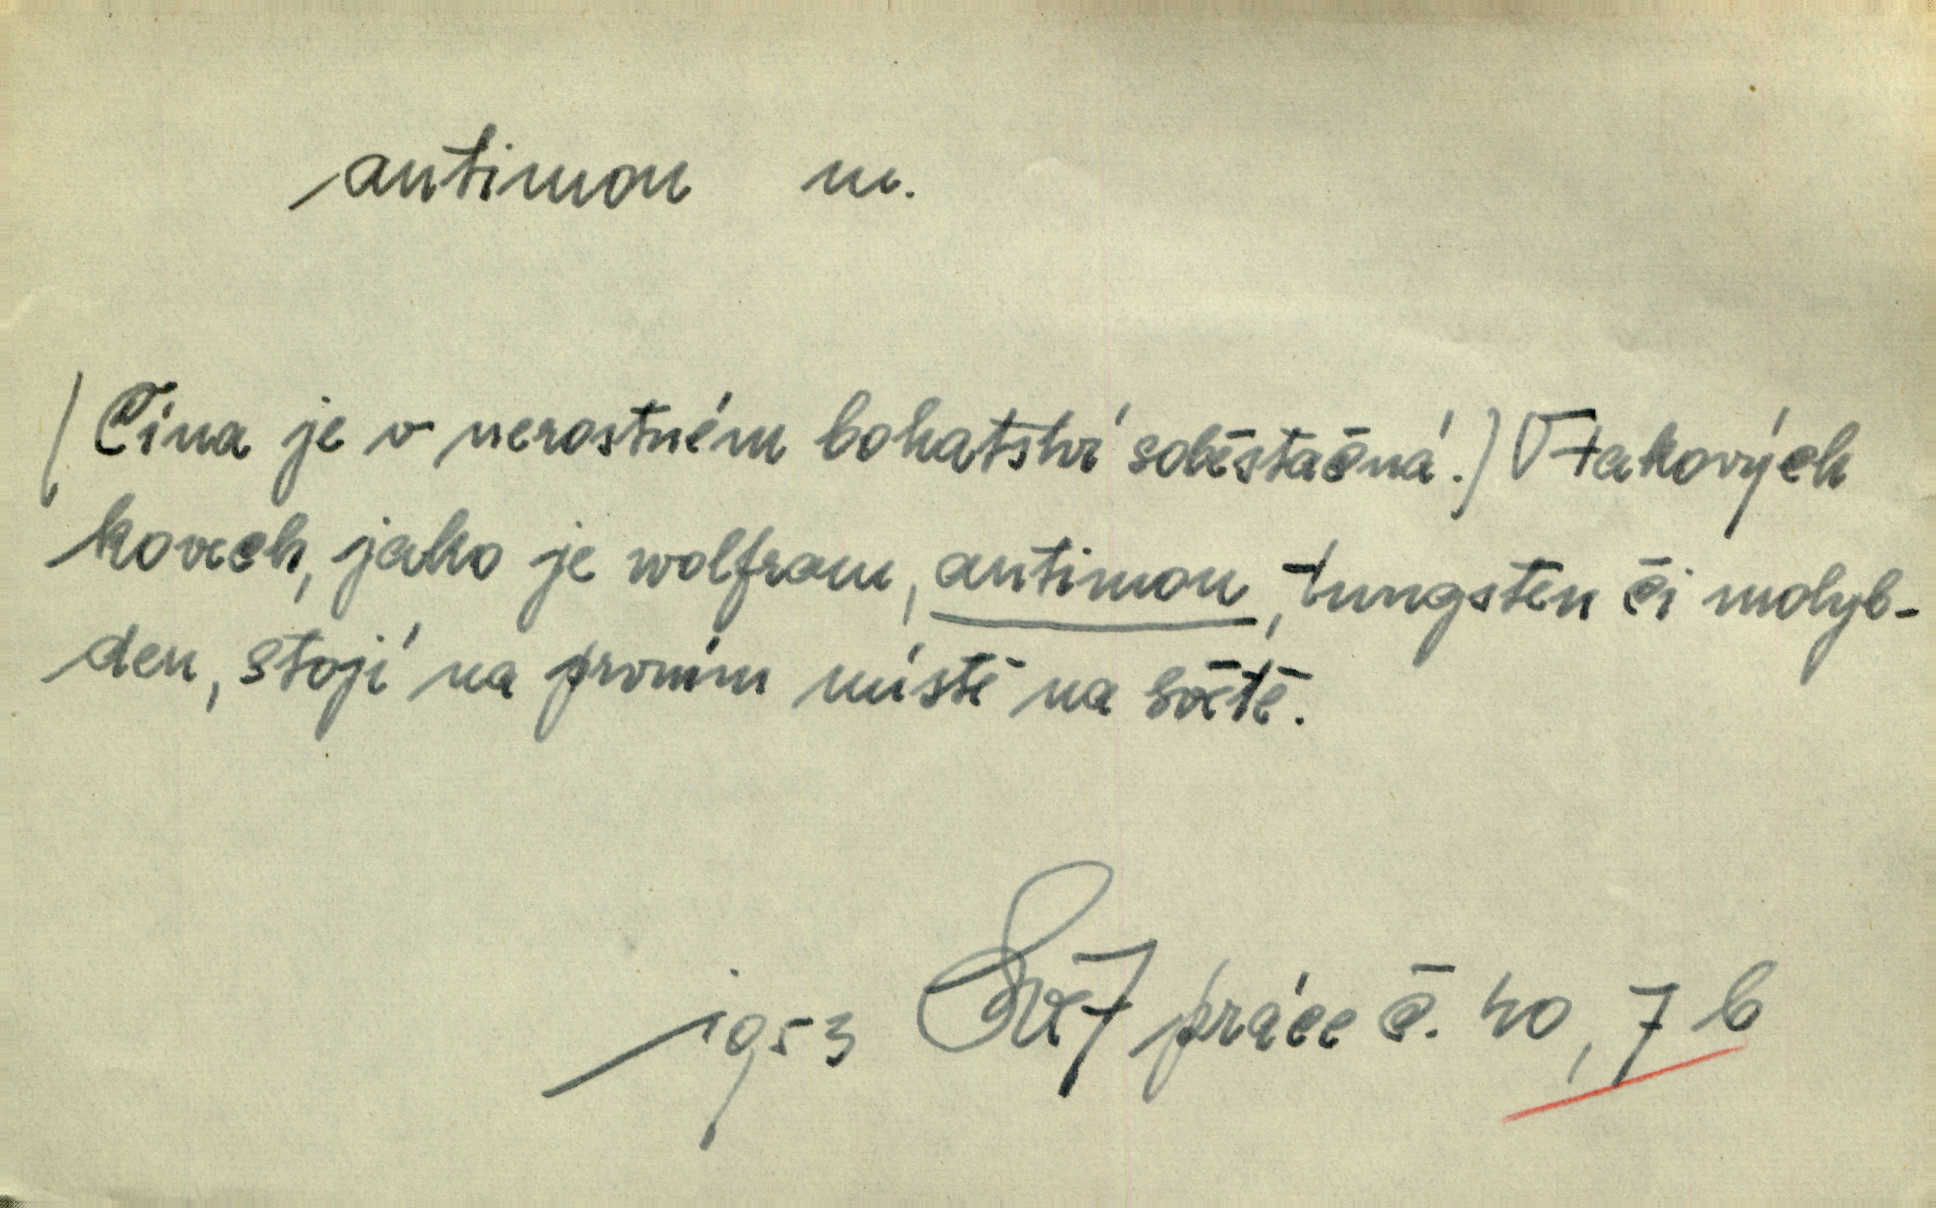 antimon m.
(Čína je v nerostném bohatství soběstačná.) V takových
kovech, jako je wolfram, antimon, tungsten či molyb-
den, stojí na prvním místě na světě.
1953 Svět práce č. 40, 7 b